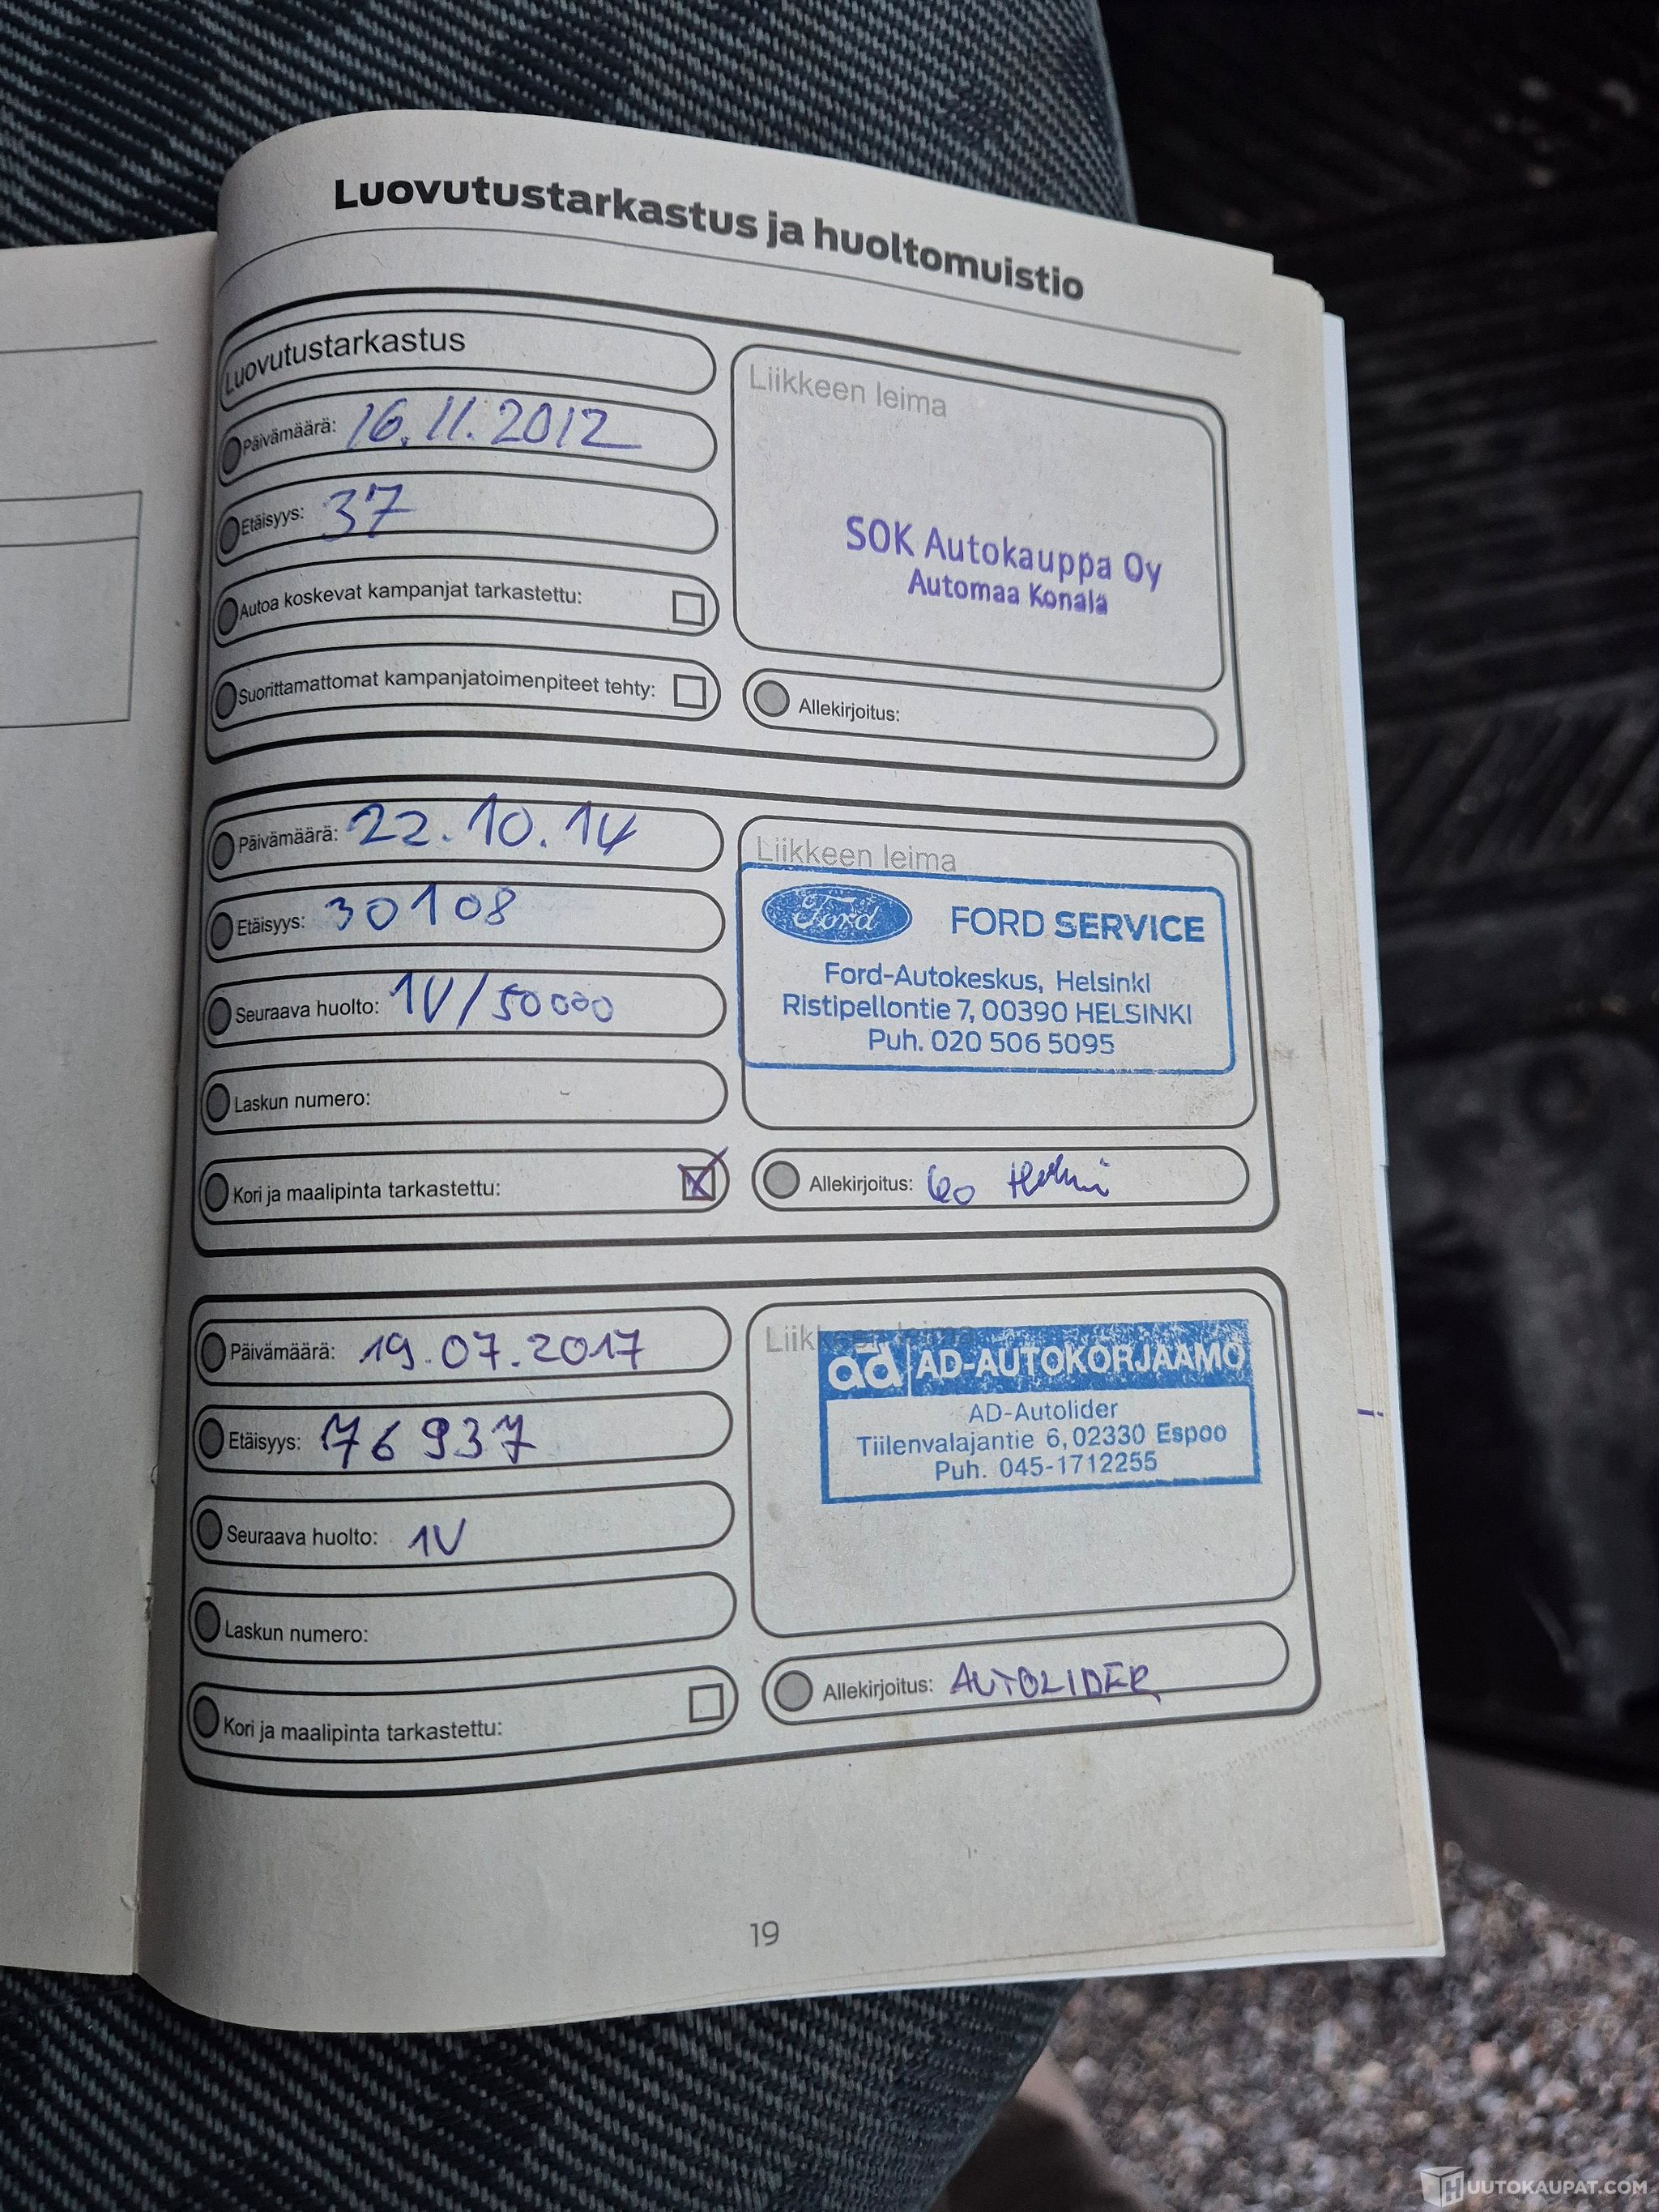 Luovutustarkastus ja huoltomuistio
Luovutustarkastus
Päivämäärä: 16.11.2012
Etäisyys: 37
Autoa koskevat kampanjat tarkastettu:
Suorittamattomat kampanjatoimenpiteet tehty:
Liikkeen leima
SOK Autokauppa Oy
Automaa Konala
Allekirjoitus:
Päivämäärä: 22.10.14
Etäisyys: 30108
Seuraava huolto: 1V/50000
Laskun numero:
Kori ja maalipinta tarkastettu:
Liikkeen leima
Ford FORD SERVICE
Ford-Autokeskus, Helsinki
Ristipellontie 7, 00390 HELSINKI
Puh. 020 506 5095
Allekirjoitus:
Päivämäärä: 19.07.2017
Etäisyys: 76937
Seuraava huolto: 1V
Laskun numero:
Kori ja maalipinta tarkastettu:
Liikkeen leima
ad AD-AUTOKORJAAMO
AD-Autolider
Tiilenvalajantie 6, 02330 Espoo
Puh. 045-1712255
Allekirjoitus: AUTOLIDER
19
HUUTOKAUPAT.COM